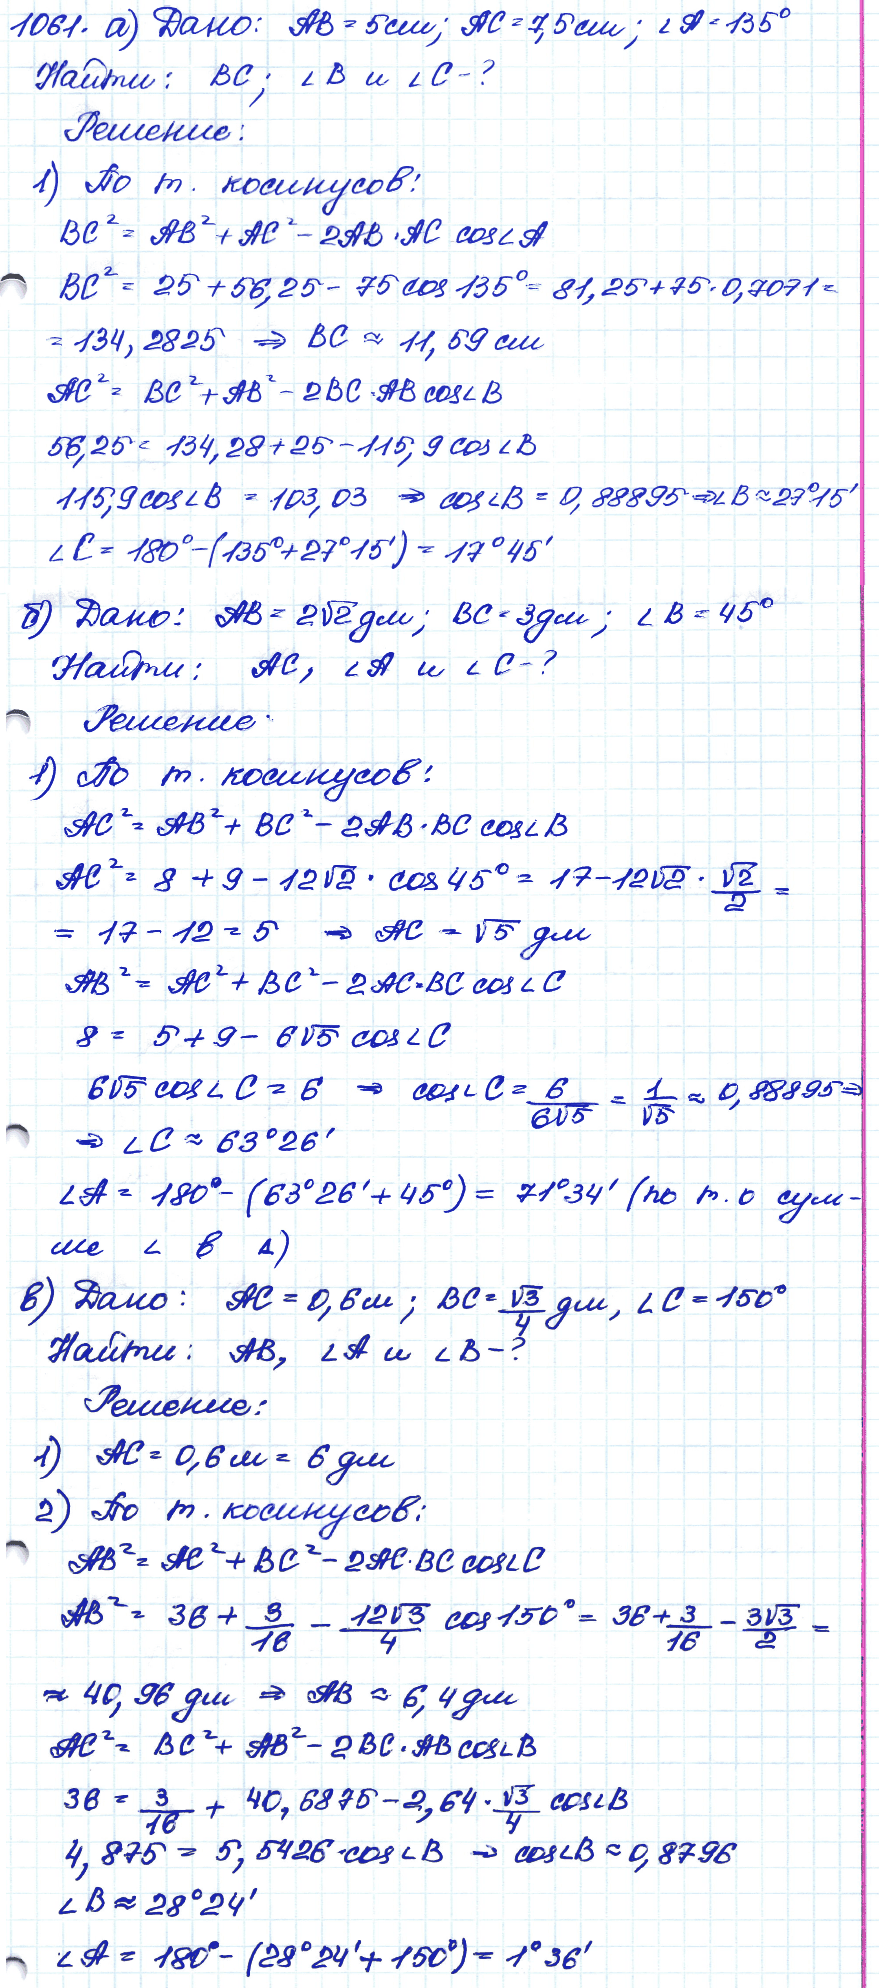 1061. а) Дано: AB = 5см; AC = 7,5см; ∠A = 135°
Найти: BC; ∠B и ∠C - ?
Решение:
1) По т. косинусов:
BC² = AB² + AC² - 2AB·AC cos∠A
BC² = 25 + 56,25 - 75 cos 135° = 81,25 + 75·0,7071 =
= 134,2825 ⇒ BC ≈ 11,59 см
AC² = BC² + AB² - 2BC·AB cos∠B
56,25 = 134,28 + 25 - 115,9 cos∠B
115,9 cos∠B = 103,03 ⇒ cos∠B = 0,88895 ⇒ ∠B ≈ 27°15'
∠C = 180° - (135° + 27°15') = 17°45'
б) Дано: AB = 2√2 дм; BC = 3дм; ∠B = 45°
Найти: AC, ∠A и ∠C - ?
Решение.
1) По т. косинусов:
AC² = AB² + BC² - 2AB·BC cos∠B
AC² = 8 + 9 - 12√2 · cos 45° = 17 - 12√2 · √2/2 =
= 17 - 12 = 5 ⇒ AC = √5 дм
AB² = AC² + BC² - 2AC·BC cos∠C
8 = 5 + 9 - 6√5 cos∠C
6√5 cos∠C = 6 ⇒ cos∠C = 6/6√5 = 1/√5 ≈ 0,88895 ⇒
⇒ ∠C ≈ 63°26'
∠A = 180° - (63°26' + 45°) = 71°34' (по т. о сум-
ме ∠ в ∆)
в) Дано: AC = 0,6м; BC = √3/4 дм, ∠C = 150°
Найти: AB, ∠A и ∠B - ?
Решение:
1) AC = 0,6м = 6 дм
2) По т. косинусов:
AB² = AC² + BC² - 2AC·BC cos∠C
AB² = 36 + 3/16 - 12√3/4 cos 150° = 36 + 3/16 - 3√3/2 =
≈ 40,96 дм ⇒ AB ≈ 6,4 дм
AC² = BC² + AB² - 2BC·AB cos∠B
36 = 3/16 + 40,6875 - 2,64·√3/4 cos∠B
4,875 = 5,5426·cos∠B ⇒ cos∠B ≈ 0,8796
∠B ≈ 28°24'
∠A = 180° - (28°24' + 150°) = 1°36'